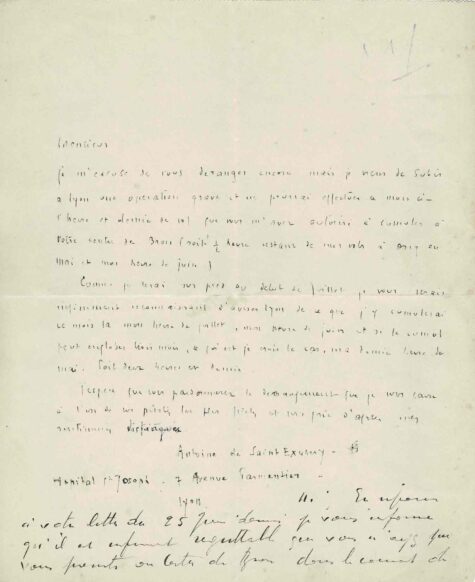 Monsieur
Je m'excuse de vous déranger encore mais je viens de subir
à Lyon une opération grave et ne pourrai effectuer ce mois ci
l'heure et demie de vol que vous m'avez autorisé à cumuler à
votre centre de Bron (voilà ½ heure restant de mes vols à Orly en
Mai et mon heure de juin)
Comme je serai sur pied au début de juillet je vous serais
infiniment reconnaissant d'avertir Lyon de ce que j'y cumulerai
ce mois là mon heure de juillet, mon heure de juin et si le cumul
peut englober trois mois, ce qui est je crois le cas, ma demie heure de
mai. Soit deux heures et demie
J'espère que vous pardonnerez le dérangement que je vous cause
à l'un de vos pilotes les plus fidèles et vous prie d'agréer mes
sentiments distingués
Antoine de Saint Exupéry
Hôpital St Joseph. 7 Avenue Parmentier
Lyon
En réponse
à votre lettre du 25 Juin je vous informe
qu'il est infiniment regrettable que vous n'ayez pas
vous présenté au Centre de Bron dans le courant de